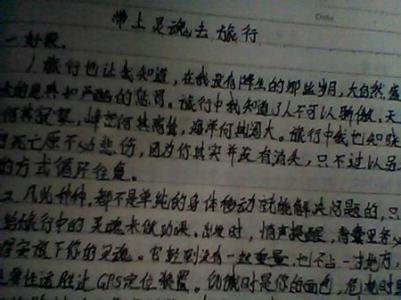 带上灵魂去旅行
一.好段.
1.旅行也让我知道,在我没有降生的那些岁月,大自然盛
大的恩典和严酷的惩罚。旅行中我知道了人不可以骄傲,天
何其寂寥,峰峦何其高耸,海洋何其阔大。旅行中我也知晓
死亡原不必悲伤,因为你其实并没有消失,只不过以另
的方式循环往复。
2.凡此种种,都不是单纯的身体移动就能解决问题的,只
给旅行中的灵魂来做功课。出发时,悄声提醒,背囊里务必
安放下你的灵魂。它轻到没有一丝重量,也不占一寸地方,
要性远胜过GPS定位装置。饥饿时是你的面包,危机时